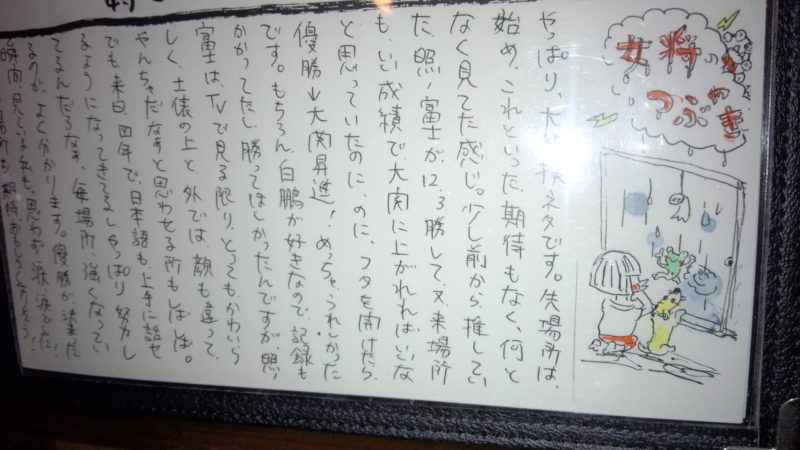 女将の
つぶやき
やっぱり、大相撲ネタです。先場所は、
始め、これといった期待もなく、何と
なく見てた感じ。少し前から、推してい
た、照ノ富士が、12、3勝して、又、来場所
も、いい成績で、大関に上がれればいいな
と思っていたのに、のに、フタを開けたら、
優勝→大関昇進！めっちゃ、うれしかった
です。もちろん、白鵬が好きなので、記録も
かかってたし、勝ってほしかったんですが、照ノ
富士は、TVで見る限り、とってもかわいら
しく、土俵の上と、外では、顔も違って、
やんちゃだなぁと思わせる所もしばしば。
でも、来日、四年で、日本語も、上手に話せ
るようになってきてるし、やっぱり努力し
てるんだろうなぁ、毎場所、強くなってい
るのが、よく分かります。優勝が決まった
瞬間、見てる私も、思わず、涙、涙でした！
場所も、期待